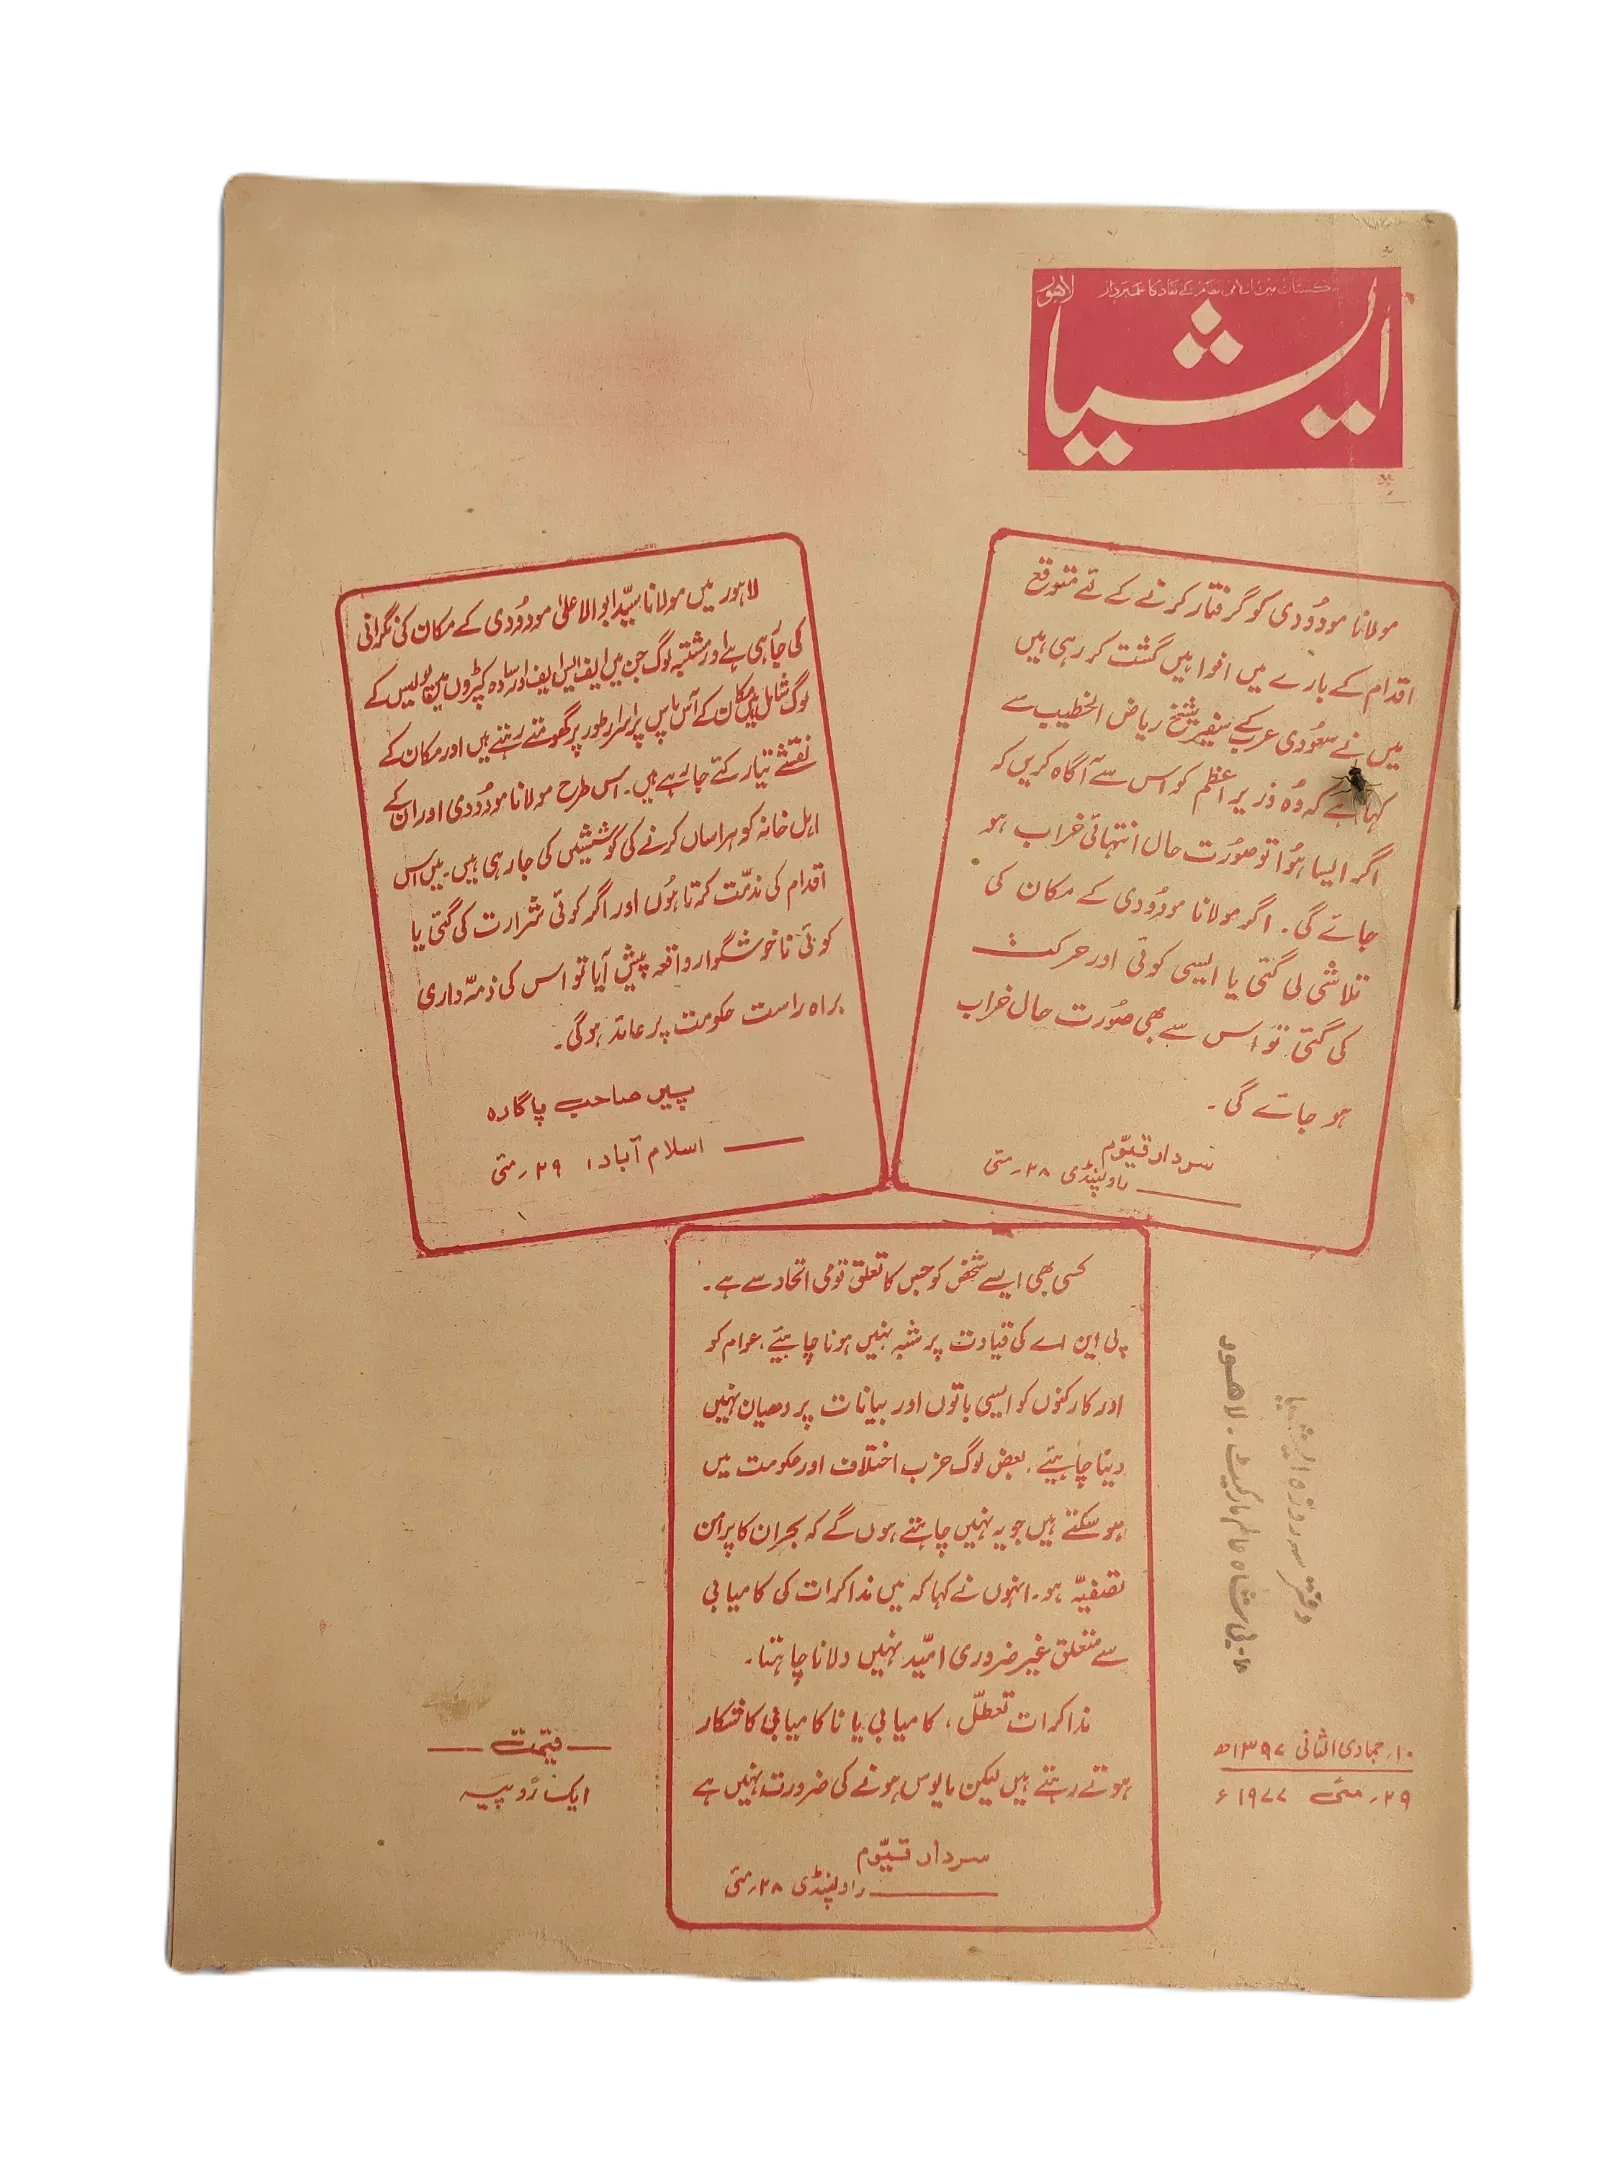 پاکستان میں اسلامی نظام کے نفاذ کا علمبردار
لاہور
ایشیا
مولانا مودُودی کو گرفتار کرنے کے لئے متوقع
اقدام کے بارے میں افواہیں گشت کر رہی ہیں
میں نے سعُودی عرب کے سفیر شیخ ریاض الخطیب سے
کہا ہے کہ وُہ وزیر اعظم کو اس سے آگاہ کریں کہ
اگر ایسا ہُوا تو صُورت حال انتہائی خراب ہو
جائے گی۔ اگر مولانا مودُودی کے مکان کی
تلاشی لی گئی یا ایسی کوئی اور حرکت
کی گئی تو اس سے بھی صُورت حال خراب
ہو جائے گی۔
سردار قیّوم
راولپنڈی ۲۸ رمئی
لاہور میں مولانا سیّد ابوالاعلیٰ مودُودی کے مکان کی نگرانی
کی جا رہی ہے اور مشتبہ لوگ جن میں ایف ایس ایف اور سادہ کپڑوں میں پولیس کے
لوگ شامل ہیں مکان کے آس پاس پُراسرار طور پر گھومتے رہتے ہیں اور مکان کے
نقشے تیار کئے جا رہے ہیں۔ اس طرح مولانا مودُودی اور ان کے
اہل خانہ کو ہراساں کرنے کی کوششیں کی جا رہی ہیں۔ میں اس
اقدام کی مذمّت کرتا ہُوں اور اگر کوئی شرارت کی گئی یا
کوئی ناخوشگوار واقعہ پیش آیا تو اس کی ذمہّ داری
براہ راست حکومت پر عائد ہوگی۔
پیر صاحب پاگارہ
اسلام آباد، ۲۹ رمئی
کسی بھی ایسے شخص کو جس کا تعلق قومی اتحاد سے ہے۔
پی این اے کی قیادت پر شبہ نہیں ہونا چاہیئے، عوام کو
اور کارکنوں کو ایسی باتوں اور بیانات پر دھیان نہیں
دینا چاہیئے، بعض لوگ حزب اختلاف اور حکومت میں
ہو سکتے ہیں جو یہ نہیں چاہتے ہوں گے کہ بحران کا پرامن
تصفیہّ ہو۔ انہوں نے کہا کہ میں مذاکرات کی کامیابی
سے متعلق غیر ضروری امّید نہیں دلانا چاہتا۔
مذاکرات تعطّل، کامیابی یا ناکامیابی کا شکار
ہوتے رہتے ہیں لیکن مایوس ہونے کی ضرورت نہیں ہے
سردار قیّوم
راولپنڈی ۲۸ رمئی
دفتر سہ روزہ ایشیا
۸۔بی شاہ عالم مارکیٹ۔ لاہور
۱۰ر جمادی الثانی ۱۳۹۷ھ
۲۹ر مئی ۱۹۷۷ء
قیمت
ایک روپیہ